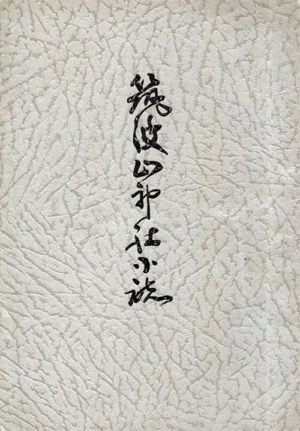 筑波山神社小誌